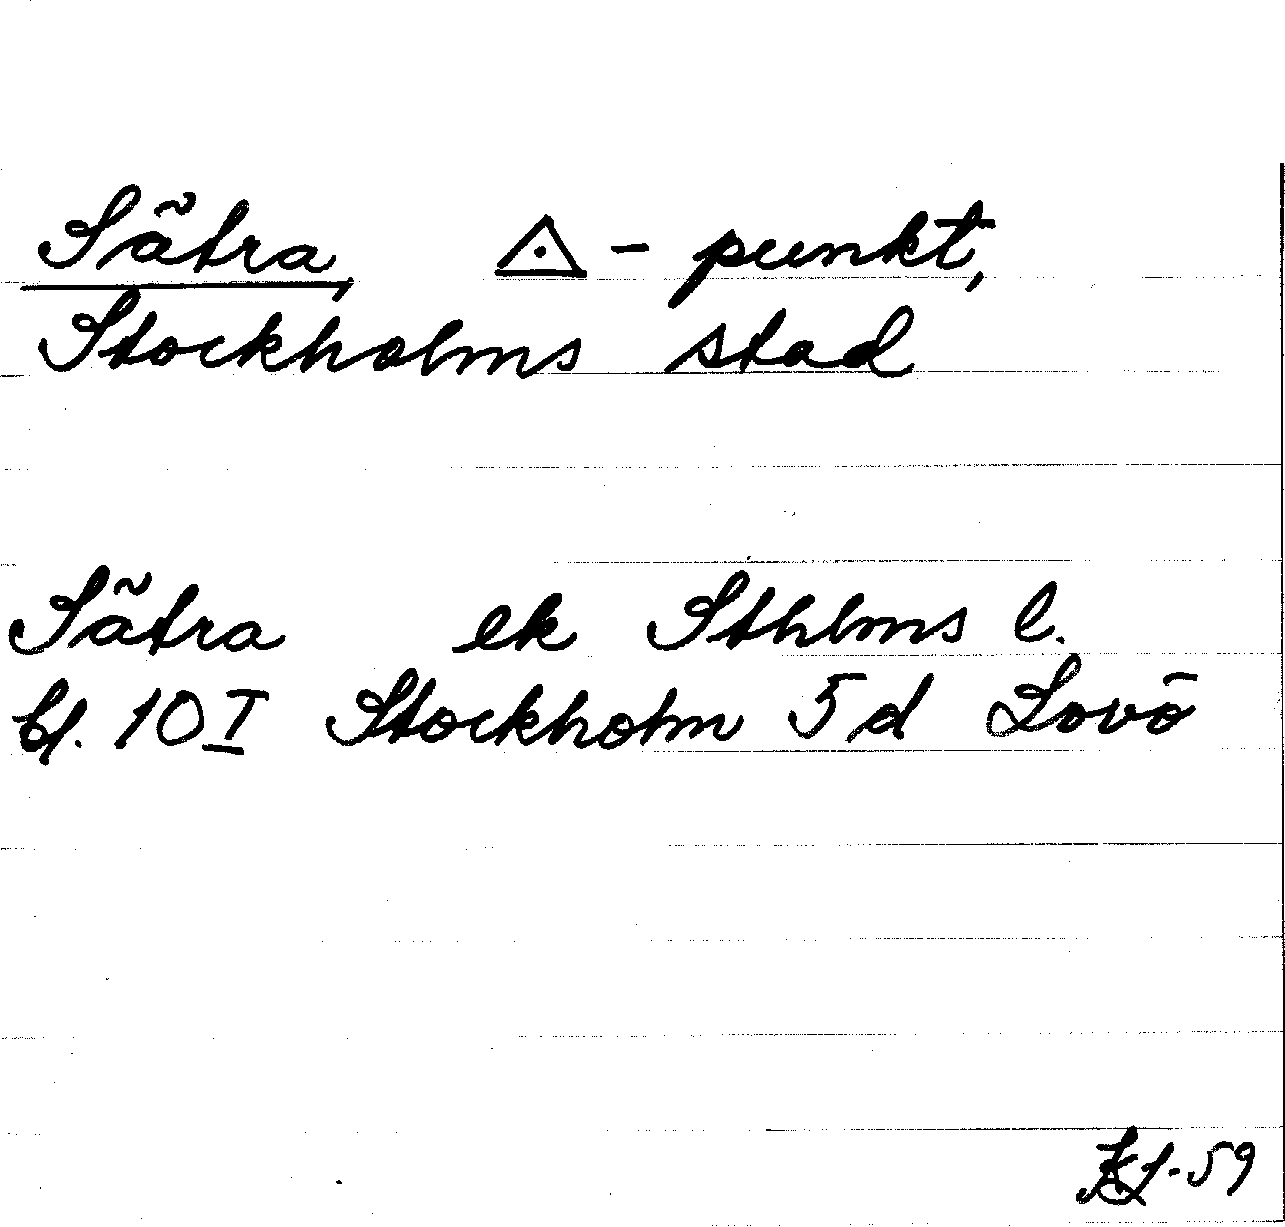 Sätra, △ - punkt,
Stockholms stad
Sätra ek Sthlms l.
bl. 10 I Stockholm 5 d Lovö
KL-59